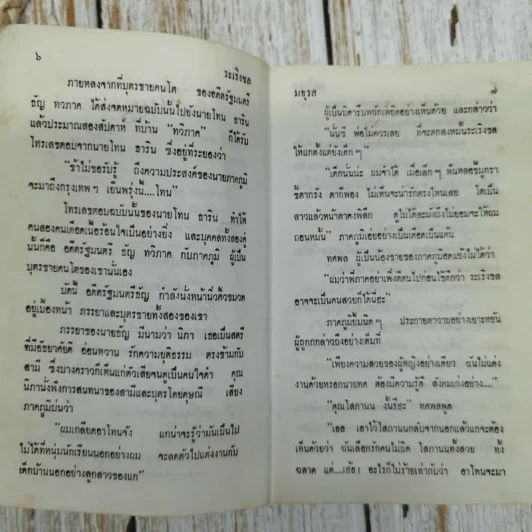 ๖
ระเริงชล
ภายหลังจากที่บุตรชายคนโต ของอดีตรัฐมนตรี
ธัญ ทวิภาค ได้ส่งจดหมายฉบับนั้นไปยังนายโทน ธาริน
แล้วประมาณสองสัปดาห์ ที่บ้าน “ทวิภาค” ก็ได้รับ
โทรเลขตอบจากนายโทน ธาริน ซึ่งอยู่ที่ระยองว่า
“ข้าไม่ขอรับรู้ ถึงความประสงค์ของนายภาคภูมิ
จะมาถึงกรุงเทพ ฯ เย็นพรุ่งนี้....โทน”
โทรเลขตอบฉบับนั้นของนายโทน ธาริน ทำให้
คนสองคนเดือดเนื้อร้อนใจเป็นอย่างยิ่ง และบุคคลทั้งสองคู่
นั้นก็คือ อดีตรัฐมนตรี ธัญ ทวิภาค กับภาคภูมิ ผู้เป็น
บุตรชายคนโตของเขานั่นเอง
บัดนี้ อดีตรัฐมนตรีธัญ กำลังนั่งหน้านิ่วคิ้วขมวด
อยู่เบื้องหน้า ภรรยาและบุตรชายทั้งสองของเขา
ภรรยาของนายธัญ มีนามว่า นิภา เธอเป็นสตรี
ที่มีอัธยาศัยดี อ่อนหวาน รักความยุติธรรม ตรงข้ามกับ
สามี ซึ่งบางคราวก็เห็นแก่ตัวเสียจนดูเป็นคนใจดำ คุณ
นิภานั่งฟังการสนทนาของสามีและบุตรโดยดุษณี เสียง
ภาคภูมิบ่นว่า
“ผมเกลียดอาโทนจัง แกน่าจะรู้ว่ามันเป็นไป
ไม่ได้ที่หนุ่มนักเรียนนอกอย่างผม จะลดตัวไปแต่งงานกับ
เด็กบ้านนอกอย่างลูกสาวของแก”
มธุรส
๗
ผู้เป็นบิดารีบพยักเพยิดอย่างเห็นด้วย และกล่าวว่า
“นั่นซี พ่อไม่ควรเลย ที่จะตกลงหมั้นระเริงชล
ให้แกตั้งแต่ยังเด็กๆ”
“เด็กนั่นน่ะ ผมจำได้ เมื่อเล็กๆ ฟันหลอขี้มูกรา
ขี้ตากรัง ตาก็พอง ไม่เห็นจะน่ารักตรงไหนเลย โตเป็น
สาวแล้วหน้าตาคงพิลึก ดูไม่ได้ละมังถึงไม่ยอมจะให้ผม
ถอนหมั้น” ภาคภูมิเอ่ยอย่างเป็นเดือดเป็นแค้น
ทศพล ผู้เป็นน้องชายของภาคภูมิอดแย้งไม่ได้ว่า
“ผมว่าพี่ภาคอย่าเพิ่งตีตนไปก่อนไข้ดีกว่า ระเริงชล
อาจจะเป็นคนสวยก็ได้นี่ฮะ”
ภาคภูมิยิ้มนิดๆ ประกายตาวายอย่างเยาะหยัน
ผู้ถูกกกล่าวถึงอย่างเต็มที่
“เพียงความสวยของผู้หญิงอย่างเดียว ฉันไม่แต่ง
งานด้วยหรอกนายทศ ต้องมีความรู้ดี สังคมเก่งอย่าง....”
“คุณโสภานน งั้นรึฮะ” ทศพลพูด
“เออ เอาไว้โสภานนกลับจากนอกแล้วแกจะต้อง
เห็นด้วยว่า ฉันเลือกรักคนไม่ผิด โสภานนทั้งสวย ทั้ง
ฉลาด แต่....เฮ้อ! อะไรก็ไม่ร้ายเท่ากับว่า อาโทนจะมา